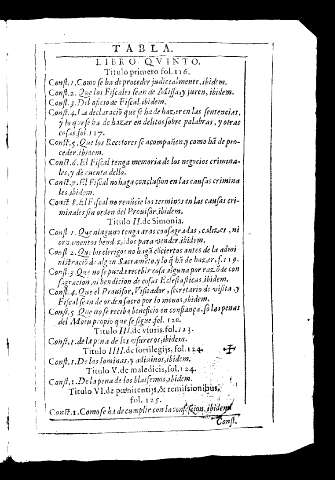 TABLA.
LIBRO QVINTO.
Titulo primero fol. 116.
Const. 1. Como se ha de proceder judicialmente, ibidem.
Const. 2. Que los Fiscales sean de Missa, y juren, ibidem.
Const. 3. Del oficio de Fiscal. ibidem.
Const. 4. La declaració que se ha de hazer en las sentencias,
y lo que se ha de hazer en delitos sobre palabras, y otras
cosas fol 117.
Const. 5. Que los Rectores se acompañen, y como hã de pro-
ceder. ibidem.
Const. 6. El Fiscal tenga memoria de los negocios crimina-
les, y dè cuenta dello.
Const. 7. El Fiscal no haga conclusion en las causas crimina
les, ibidem.
Const. 8. El Fiscal no reuoque los terminos en las causas cri-
minales sin orden del Prouisor, ibidem.
Titulo II. de Simonia.
Const. 1. Que ninguno tenga aras consagradas, calizes, ni
ornamentos bendezidos para vender, ibidem.
Const. 2. Que los clerigos no hagã conciertos antes de la admi
nistració de algũ Sacramẽto, y lo q̃ hã de hazer, f. 119.
Const. 3. Que no se pueda recebir cosa alguna por razõ de con
sagracion, ni bendicion de cosas Eclesiasticas, ibidem.
Const. 4. Que el Prouisor, Visitador, secretario de visita, y
Fiscal sea de orden sacro por lo menos, ibidem.
Const. 5. Que no se reciba beneficio en confiança, so las penas
del Motu proprio que se sigue fol. 120.
Titulo III. de vsuris, fol. 123.
Const. 1. de la pena de los vsureros, ibidem.
Titulo IIII. de sortilegijs, fol. 124.
Const. 1. De los and adiuinos, ibidem.
Titulo V. de maledicis, fol. 124.
Const. 1. De la pena de los blasfemos, ibidem.
Titulo VI. de pœnitentijs, & remissionibus,
fol. 125.
Const. 1. Como se ha de cumplir con la confession, ibidem
Const.